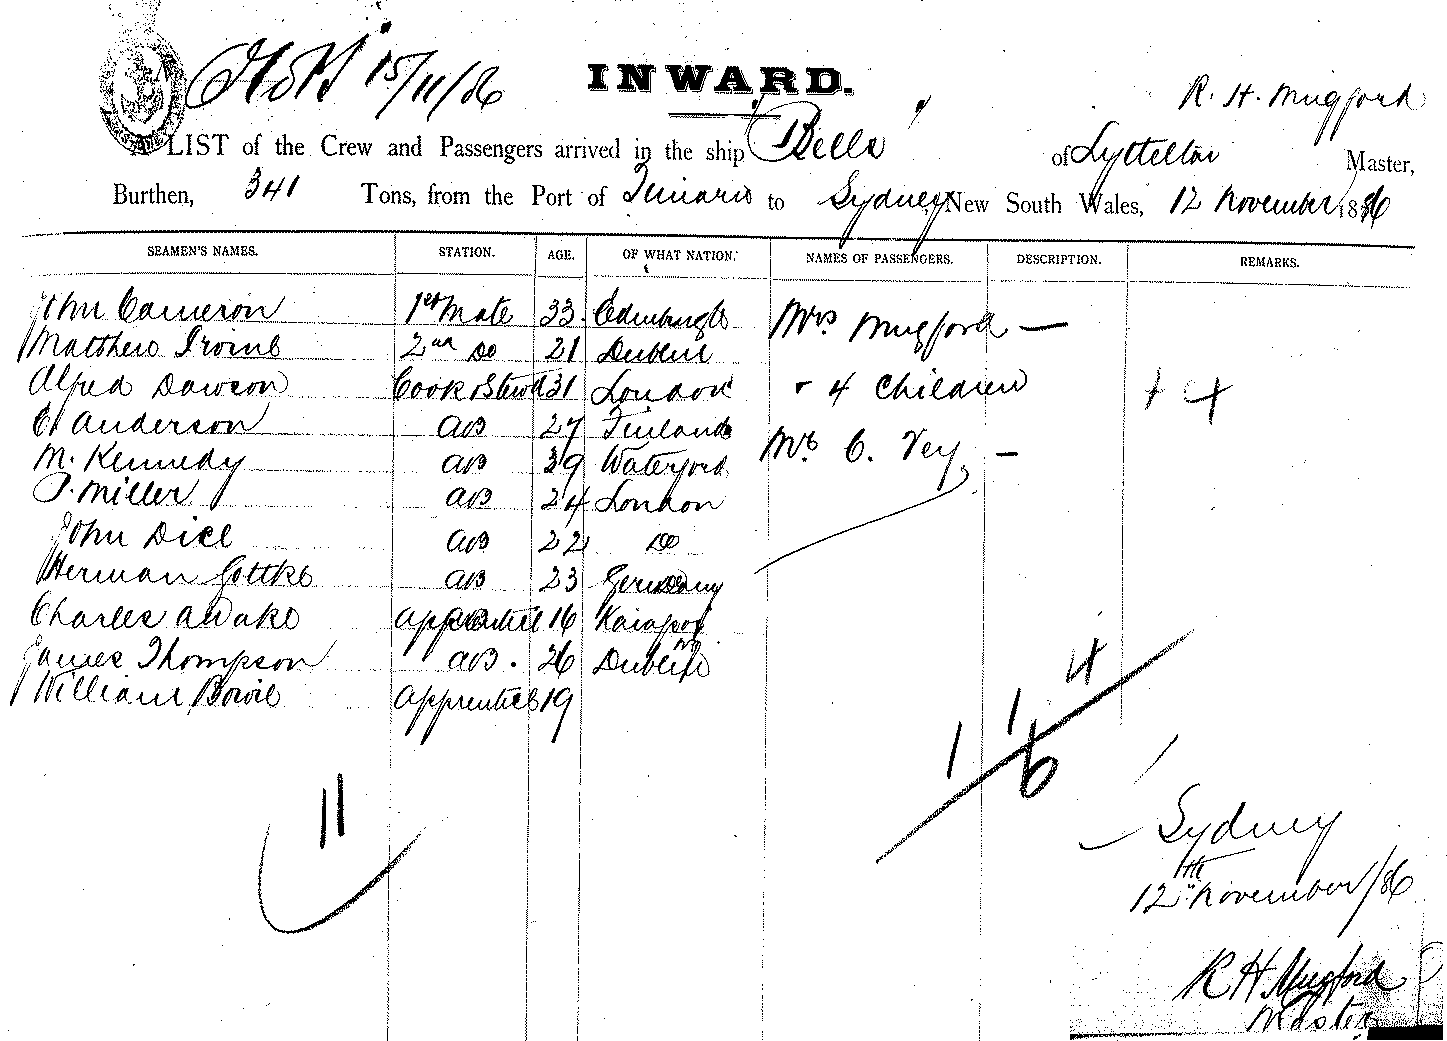 15/11/86
INWARD.
R. H. Mugford
A LIST of the Crew and Passengers arrived in the ship "Bella" of Lyttelton Master,
Burthen, 341 Tons, from the Port of to Sydney, New South Wales, 12 November 1886
SEAMEN'S NAMES. STATION. AGE. OF WHAT NATION. NAMES OF PASSENGERS. DESCRIPTION. REMARKS.
John Cameron 1st Mate 33 Edinburgh Mrs Mugford —
Matthew Irvine 2nd Do 21 Dublin
Alfred Dawson Cook & Stewd 31 London 4 Children
C Anderson AB 27 Finland
M. Kennedy AB 39 Waterford Mr C. Vey —
Miller AB 24 London
John Dice AB 22 Do
Herman Gottke AB 23 Germany
Charles A Wake Apprentice 16 Kaiapoi NZ
James Thompson AB. 26 Dublin
William Bowie Apprentice 19
4
1 1
6
11
Sydney
12th November/86
R H Mugford
Master